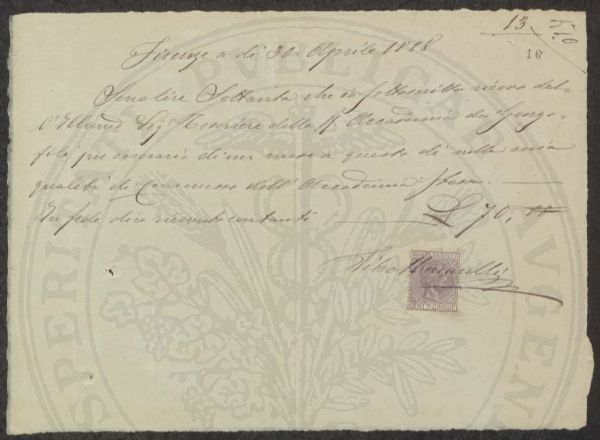 13
16
Firenze a dì 30 Aprile 1888
Sono lire Settanta che io sottoscritto ricevo dal-
l'Illmo Sigr Tesoriere della R. Accademia dei Georgo-
fili per onorario di un mese a questo dì nella mia
qualità di Commesso dell'Accademia stessa.
In fede dico ricevuto contanti £ 70,
CENT. CINQUE
PROSPERITATI PUBLICAE AUGENDAE